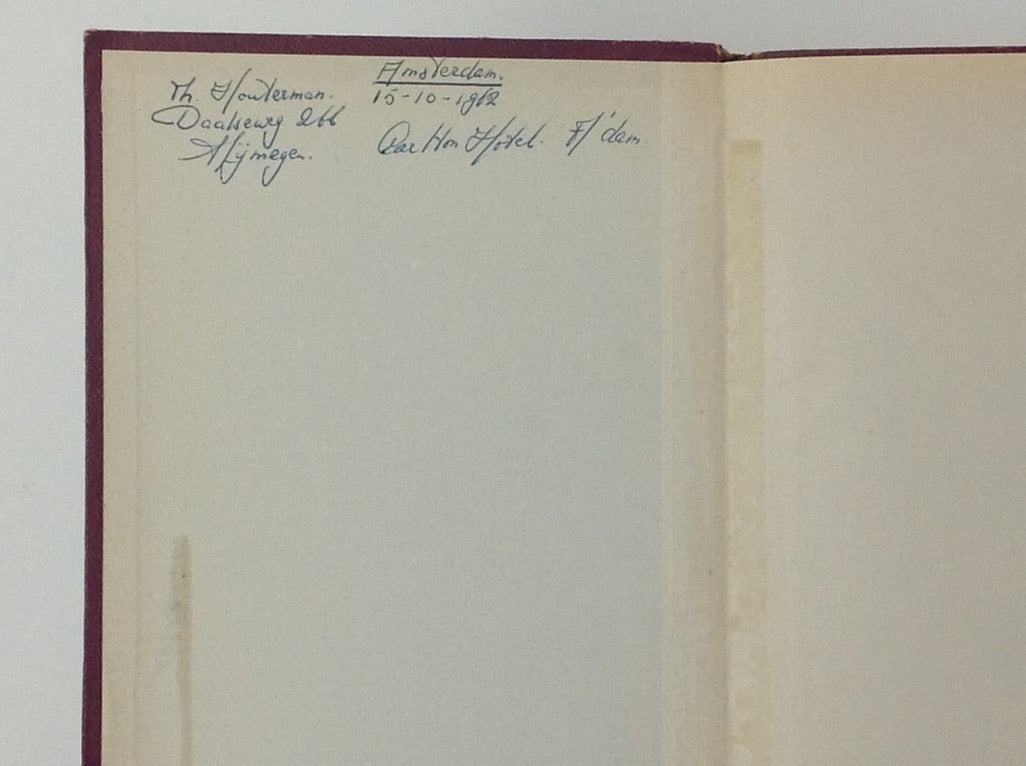 Th. Houterman.
Daalseweg 266
Nijmegen.
Amsterdam.
15-10-1962
Carlton Hotel. A'dam.